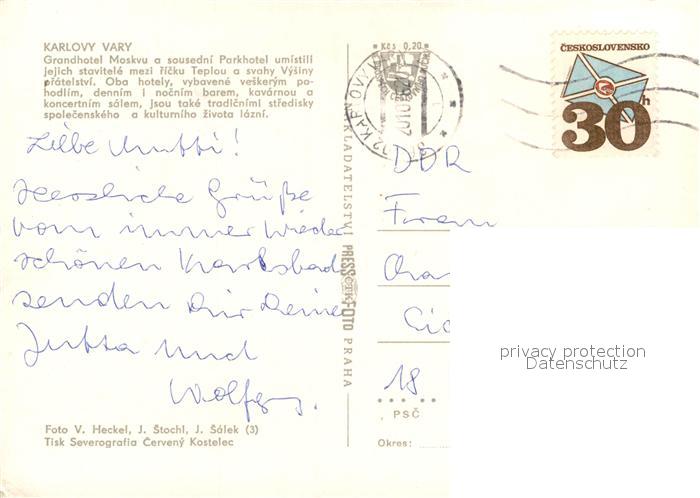 KARLOVY VARY
Grandhotel Moskvu a sousední Parkhotel umístili
jejich stavitelé mezi říčku Teplou a svahy Výšiny
přátelství. Oba hotely, vybavené veškerým po-
hodlím, denním i nočním barem, kavárnou a
koncertním sálem, jsou také tradičními středisky
společenského a kulturního života lázní.
Liebe Mutti!
Herzliche Grüße
vom immer wieder
schönen Karlsbad
senden Dir Deine
Jutta und
Wolfg
Foto V. Heckel, J. Štochl, J. Šálek (3)
Tisk Severografia Červený Kostelec
Kčs 0,20
NAKLADATELSTVÍ PRESSFOTO PRAHA
KARLOVY
ČESKOSLOVENSKO
30h
DDR
Frau
18
PSČ
Okres:
privacy protection
Datenschutz